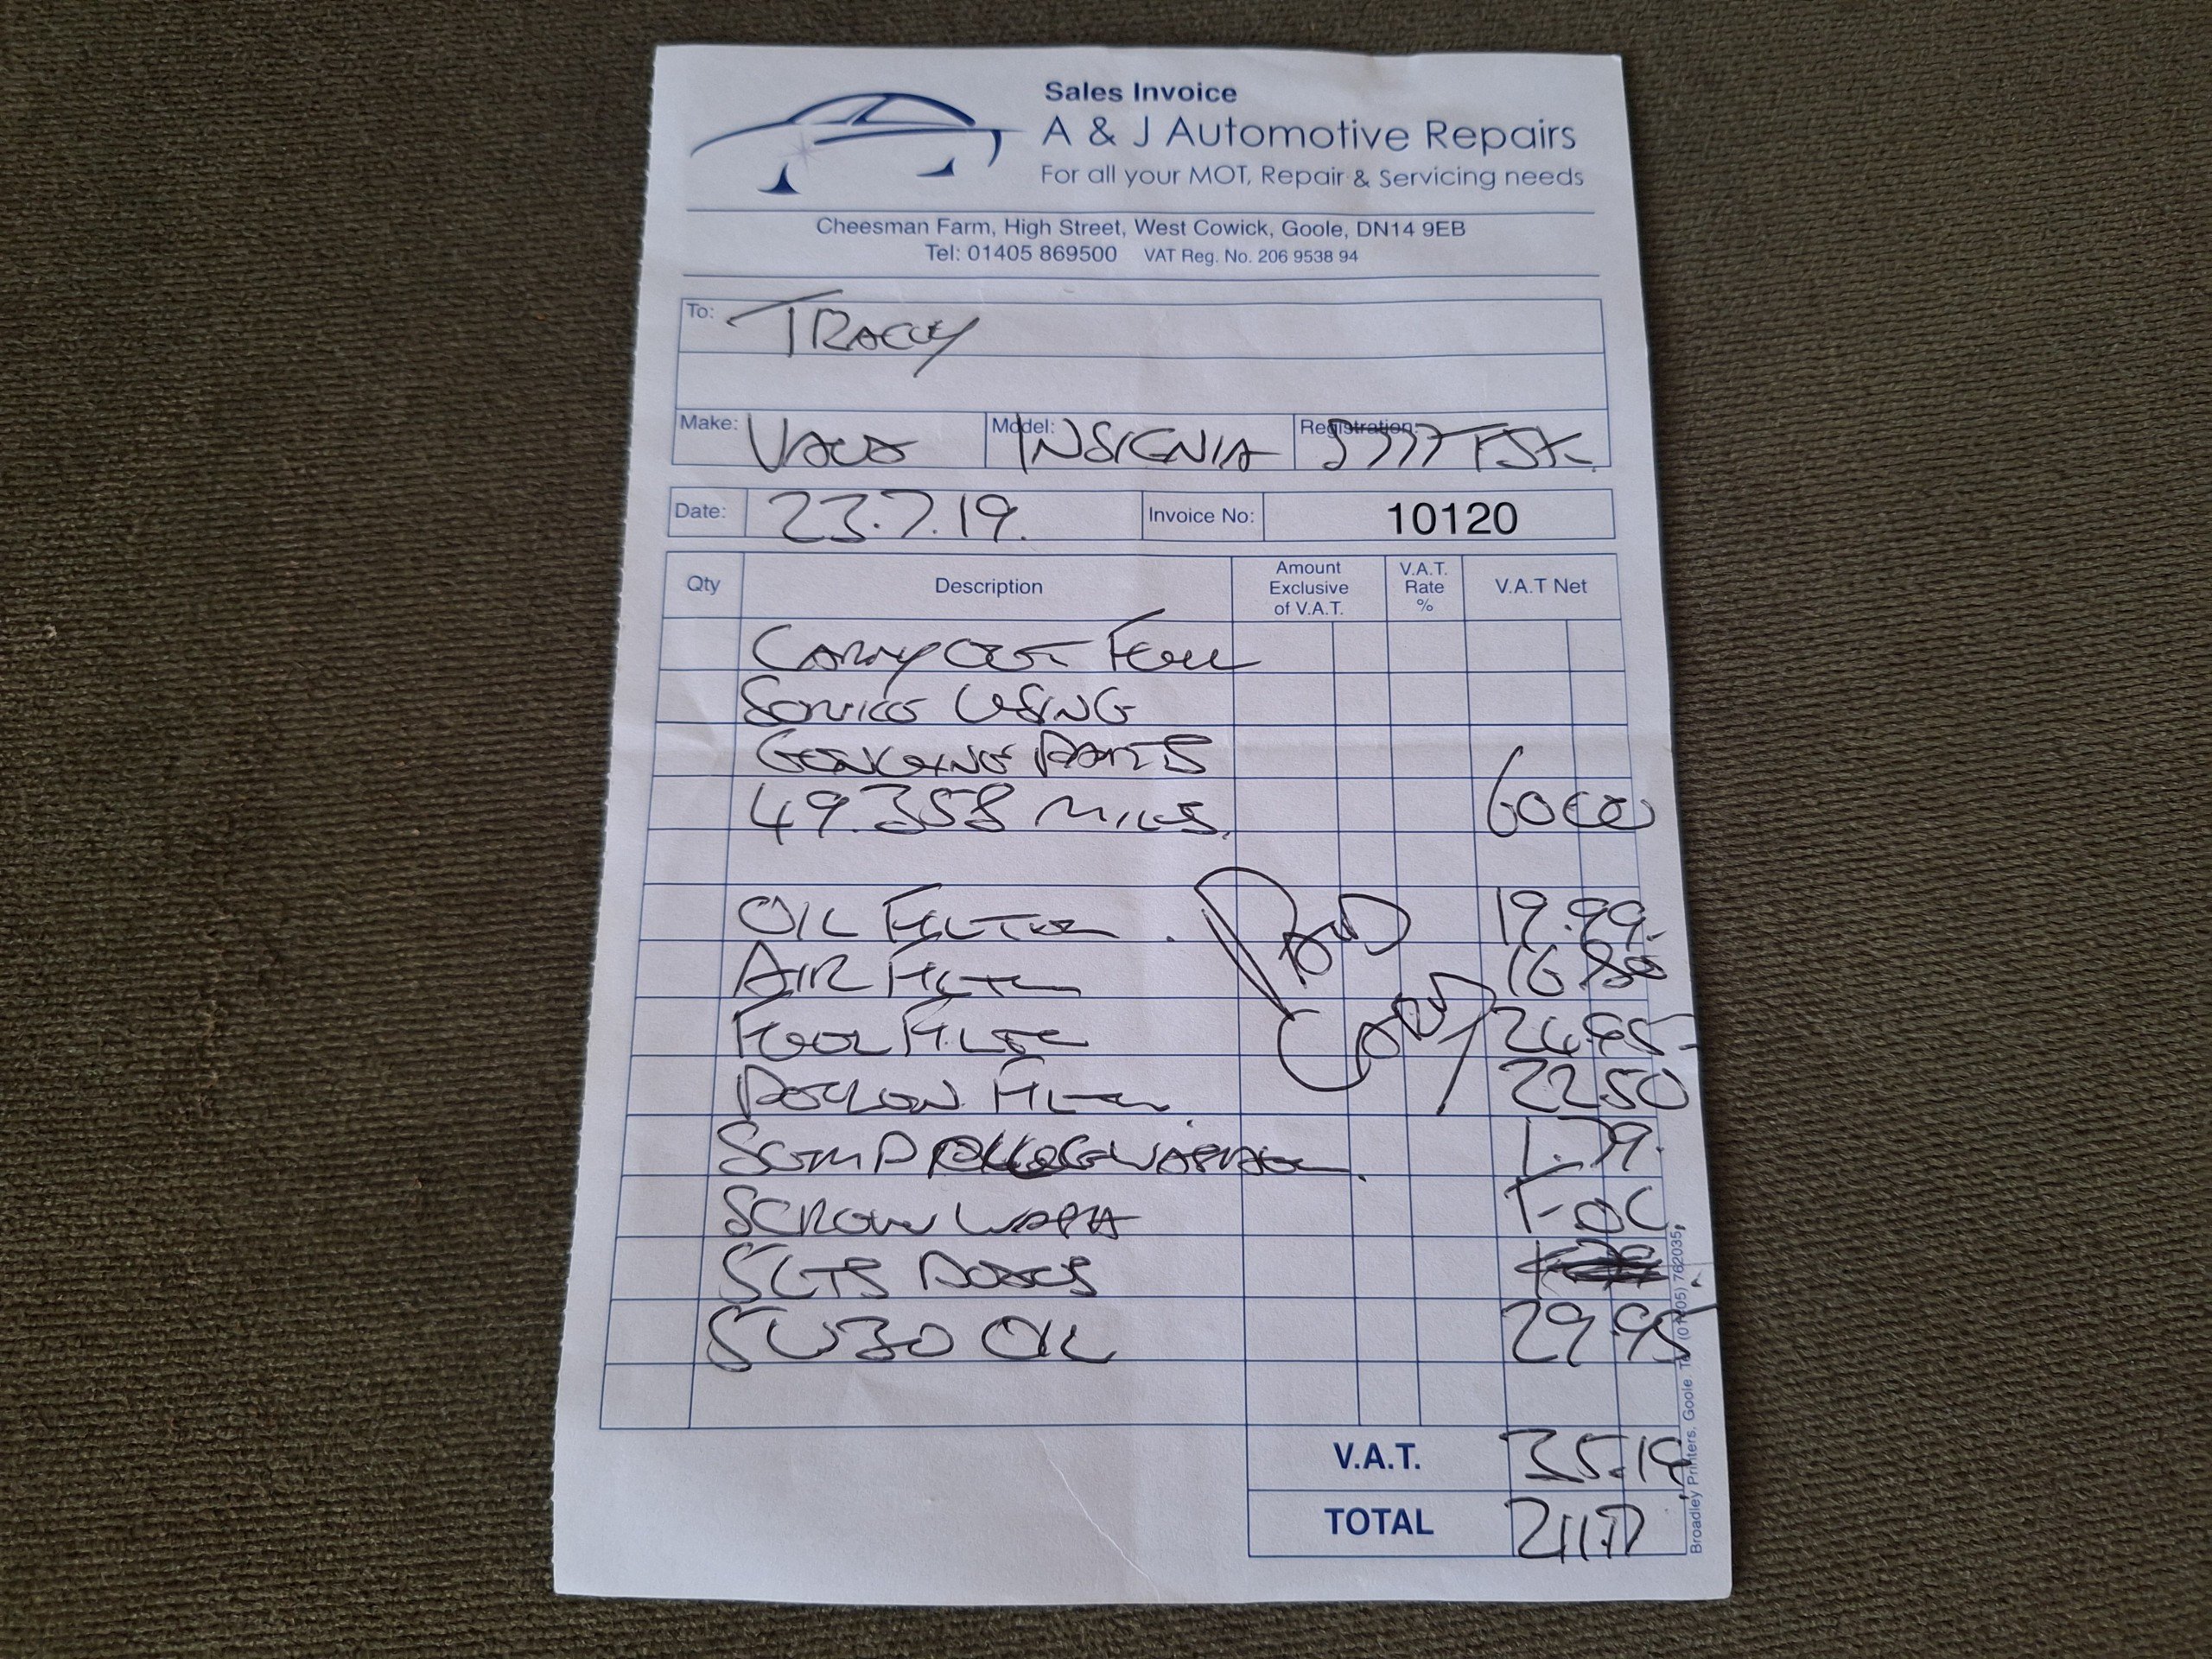 Sales Invoice
A & J Automotive Repairs
For all your MOT, Repair & Servicing needs
Cheesman Farm, High Street, West Cowick, Goole, DN14 9EB
Tel: 01405 869500 VAT Reg. No. 206 9538 94
To: TRACEY
Make: VAUX Model: INSIGNIA Registration:
Date: 23.7.19. Invoice No: 10120
Qty Description Amount Exclusive of V.A.T. V.A.T. Rate % V.A.T Net
CARRY OUT FULL
SERVICE USING
GENUINE PARTS
49.358 MILES. 60 00
OIL FILTER 19.99
AIR FILTER 16
FUEL FILTER
POLLEN FILTER 22 50
SUMP PLUG WASHER 1.79
SCREEN WASH F.O.C.
5LTS
5W30 OIL 29.95
PAID
CARD
V.A.T. 35.19
TOTAL 211.17
Broadley Printers. Goole. Tel (01405) 762035